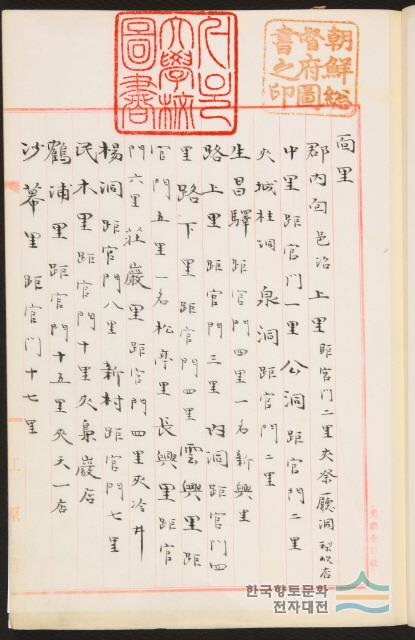 面里
郡内面邑治上里距官门二里夾祭廳洞梨峴店
中里距官门一里公洞距官门二里
夾城柱洞泉洞距官门二里
生昌驛距官门四里一名新興里
路上里距官门三里内洞距官门四
里路下里距官门四里雲興里距
官门五里一名松亭里長興里距官
门六里莊巖里距官门四里夾冷井
楊洞距官门八里新村距官门七里
民木里距官门十里夾梟巖店
鶴浦里距官门十五里夾天一店
沙幕里距官门十七里
朝鮮総
督府圖
書之印
圖書
한국향토문화
전자대전